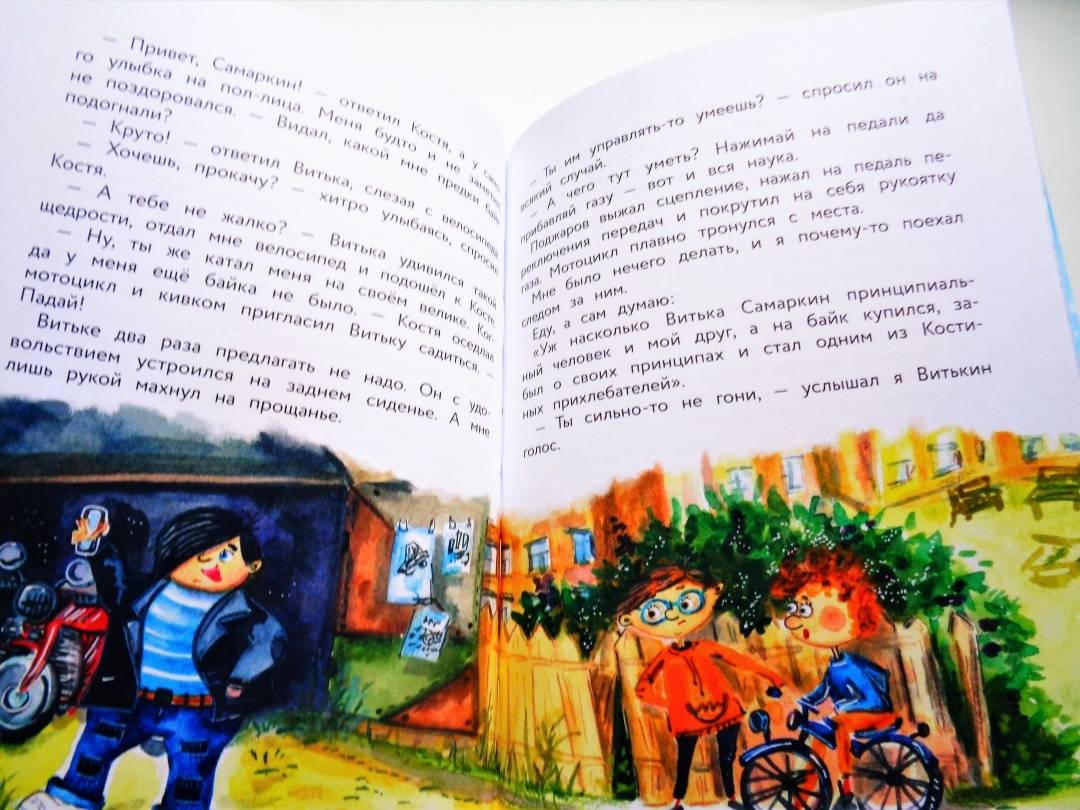 — Привет, Самаркин! — ответил Костя, а у само-
го улыбка на пол-лица. Меня будто и не заметил,
не поздоровался. — Видал, какой мне предки байк
подогнали?
— Круто! — ответил Витька, слезая с велосипеда.
— Хочешь, прокачу? — хитро улыбаясь, спросил
Костя.
— А тебе не жалко? — Витька удивился такой
щедрости, отдал мне велосипед и подошёл к Косте.
— Ну, ты же катал меня на своём велике. Ког-
да у меня ещё байка не было. — Костя оседлал
мотоцикл и кивком пригласил Витьку садиться. —
Падай!
Витьке два раза предлагать не надо. Он с удо-
вольствием устроился на заднем сиденье. А мне
лишь рукой махнул на прощанье.
— Ты им управлять-то умеешь? — спросил он на
всякий случай.
— А чего тут уметь? Нажимай на педали да
прибавляй газу — вот и вся наука.
Поджаров выжал сцепление, нажал на педаль пе-
реключения передач и покрутил на себя рукоятку
газа. Мотоцикл плавно тронулся с места.
Мне было нечего делать, и я почему-то поехал
следом за ним.
Еду, а сам думаю:
«Уж насколько Витька Самаркин принципиаль-
ный человек и мой друг, а на байк купился, за-
был о своих принципах и стал одним из Кости-
ных прихлебателей».
— Ты сильно-то не гони, — услышал я Витькин
голос.